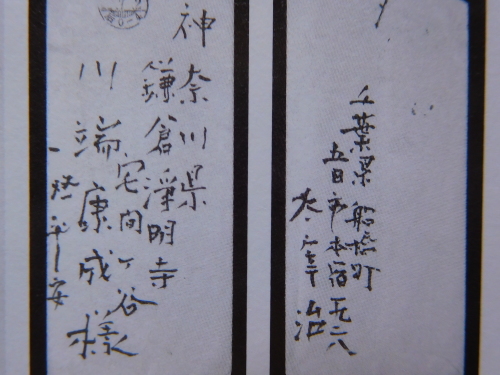 神奈川県
鎌倉浄明寺
宅間ヶ谷
川端康成様
千葉県船橋町
五日市本宿一九二八
太宰治